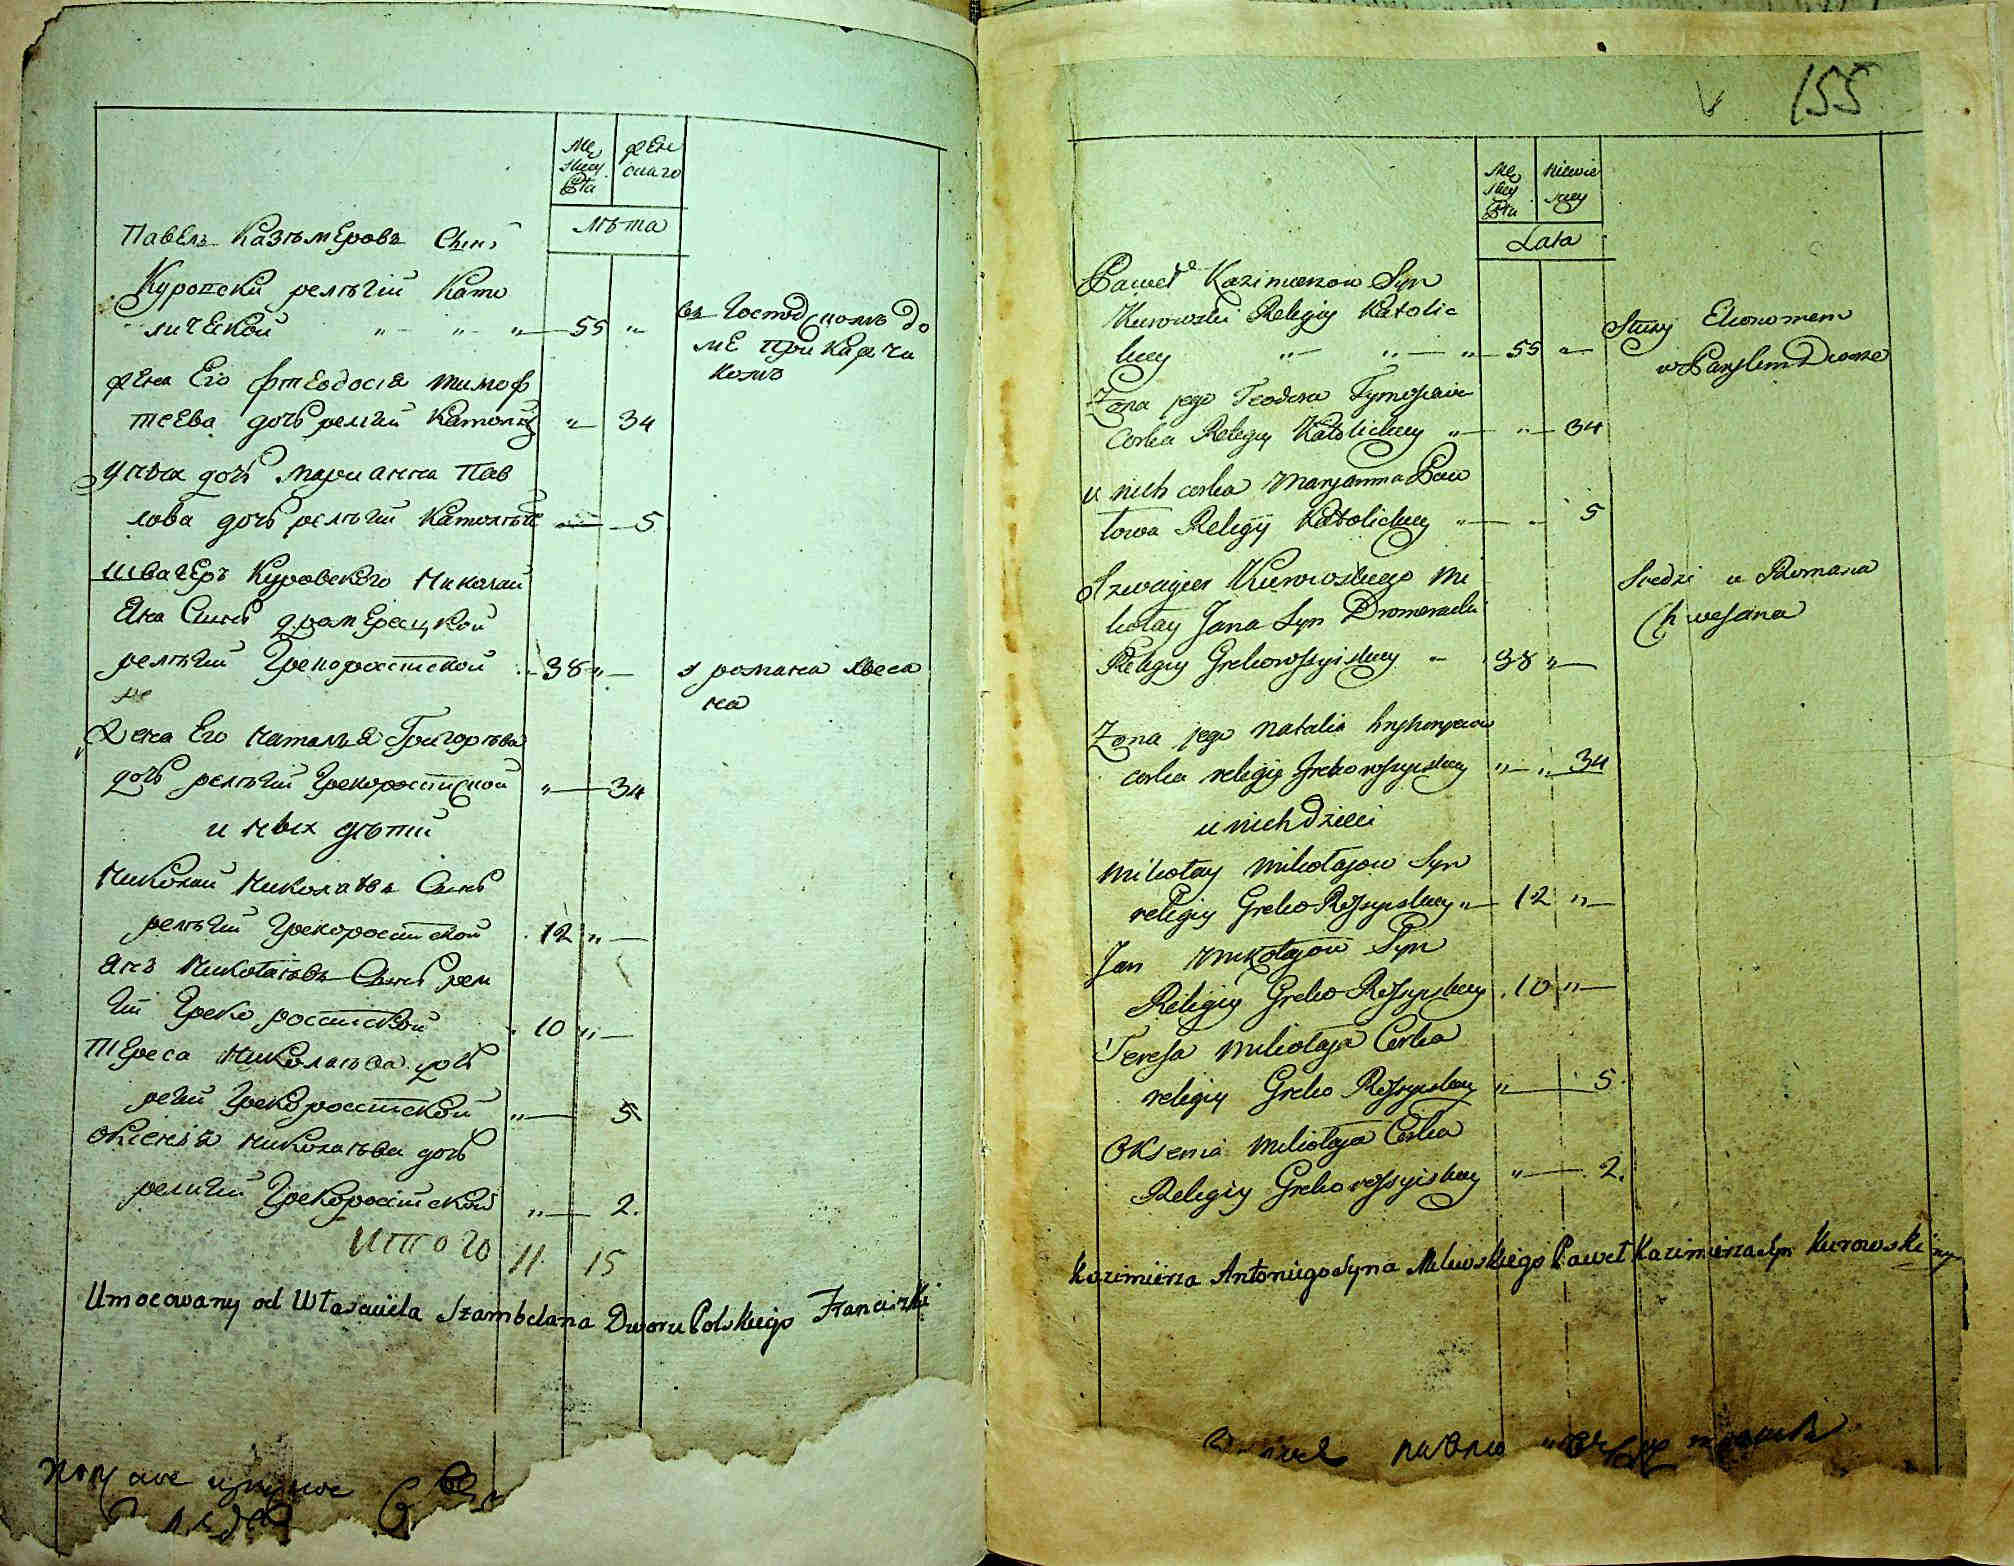 Mę skey Płci
жен скаго
Лѣта
Павелъ Казѣмѣровъ Сынъ
Куровски релѣгіи Като
лической " " " 55 "
въ Господскомъ до
ме при
жена Его Тимоф
теева дочь релгии Католиц " 34
У нихъ дочь Марианна Пав
лова дочь релѣгии Католѣц 5
Швагеръ Куровского Николай
Яна Сынъ
релѣгии Грекоросстской 38 "
у романа Хвеса
на
Жена Его Наталья Григорѣва
дочь релѣгии Грекоросстской " 34
и ных дѣти
Николай Николаевъ Сынъ
релѣгии Грекоросстской 12 "
Янъ Николаѣвъ Сынъ рели
гіи Греко росстской 10 "
Тереса Николаѣва дочь
регии Грекоросстской " 5
Оксенія Николаѣва дочь
религии Грекоросстской " 2.
Итого 11 15
Umocowany od Własciciela Szambelana Dworu Polskiego Franciszka
155
Mę skey Płci
Niewie skey
Lata
Paweł Kazimierzow Syn
Kurowski Religiy Katolic
kiey " " " 55 "
Służy Ekonomem
w Panskim Dworze
Zona jego Teodora Tymofieiowa
Corka Religiy Katolickiey " " 34
u nich corka Maryanna Paw
łowa Religiy Katolickiey " 5
Szwagier Kurowskiego Mi
kołay Jana Syn Dromeracki
Religiy Grekorossyiskiey " 38 "
Siedzi u Romana
Chwesana
Zona jego Natalia Hryhoryiow
corka religiy Grekorossyiskiey " " 34
u nich Dzieci
Mikołay Mikołajow Syn
religiy Greko Rossyiskiey " 12 "
Jan Mikołajow Syn
Religiy Greko Rossyiskiey 10 "
Teressa Mikołaja Corka
religiy Greko Rossyiskiey " 5
Oksenia Mikołaja Corka
Religiy Grekorossyiskiey " 2.
Kazimierza Antoniego syna Milewskiego Paweł Kazimierza syn Kurowski